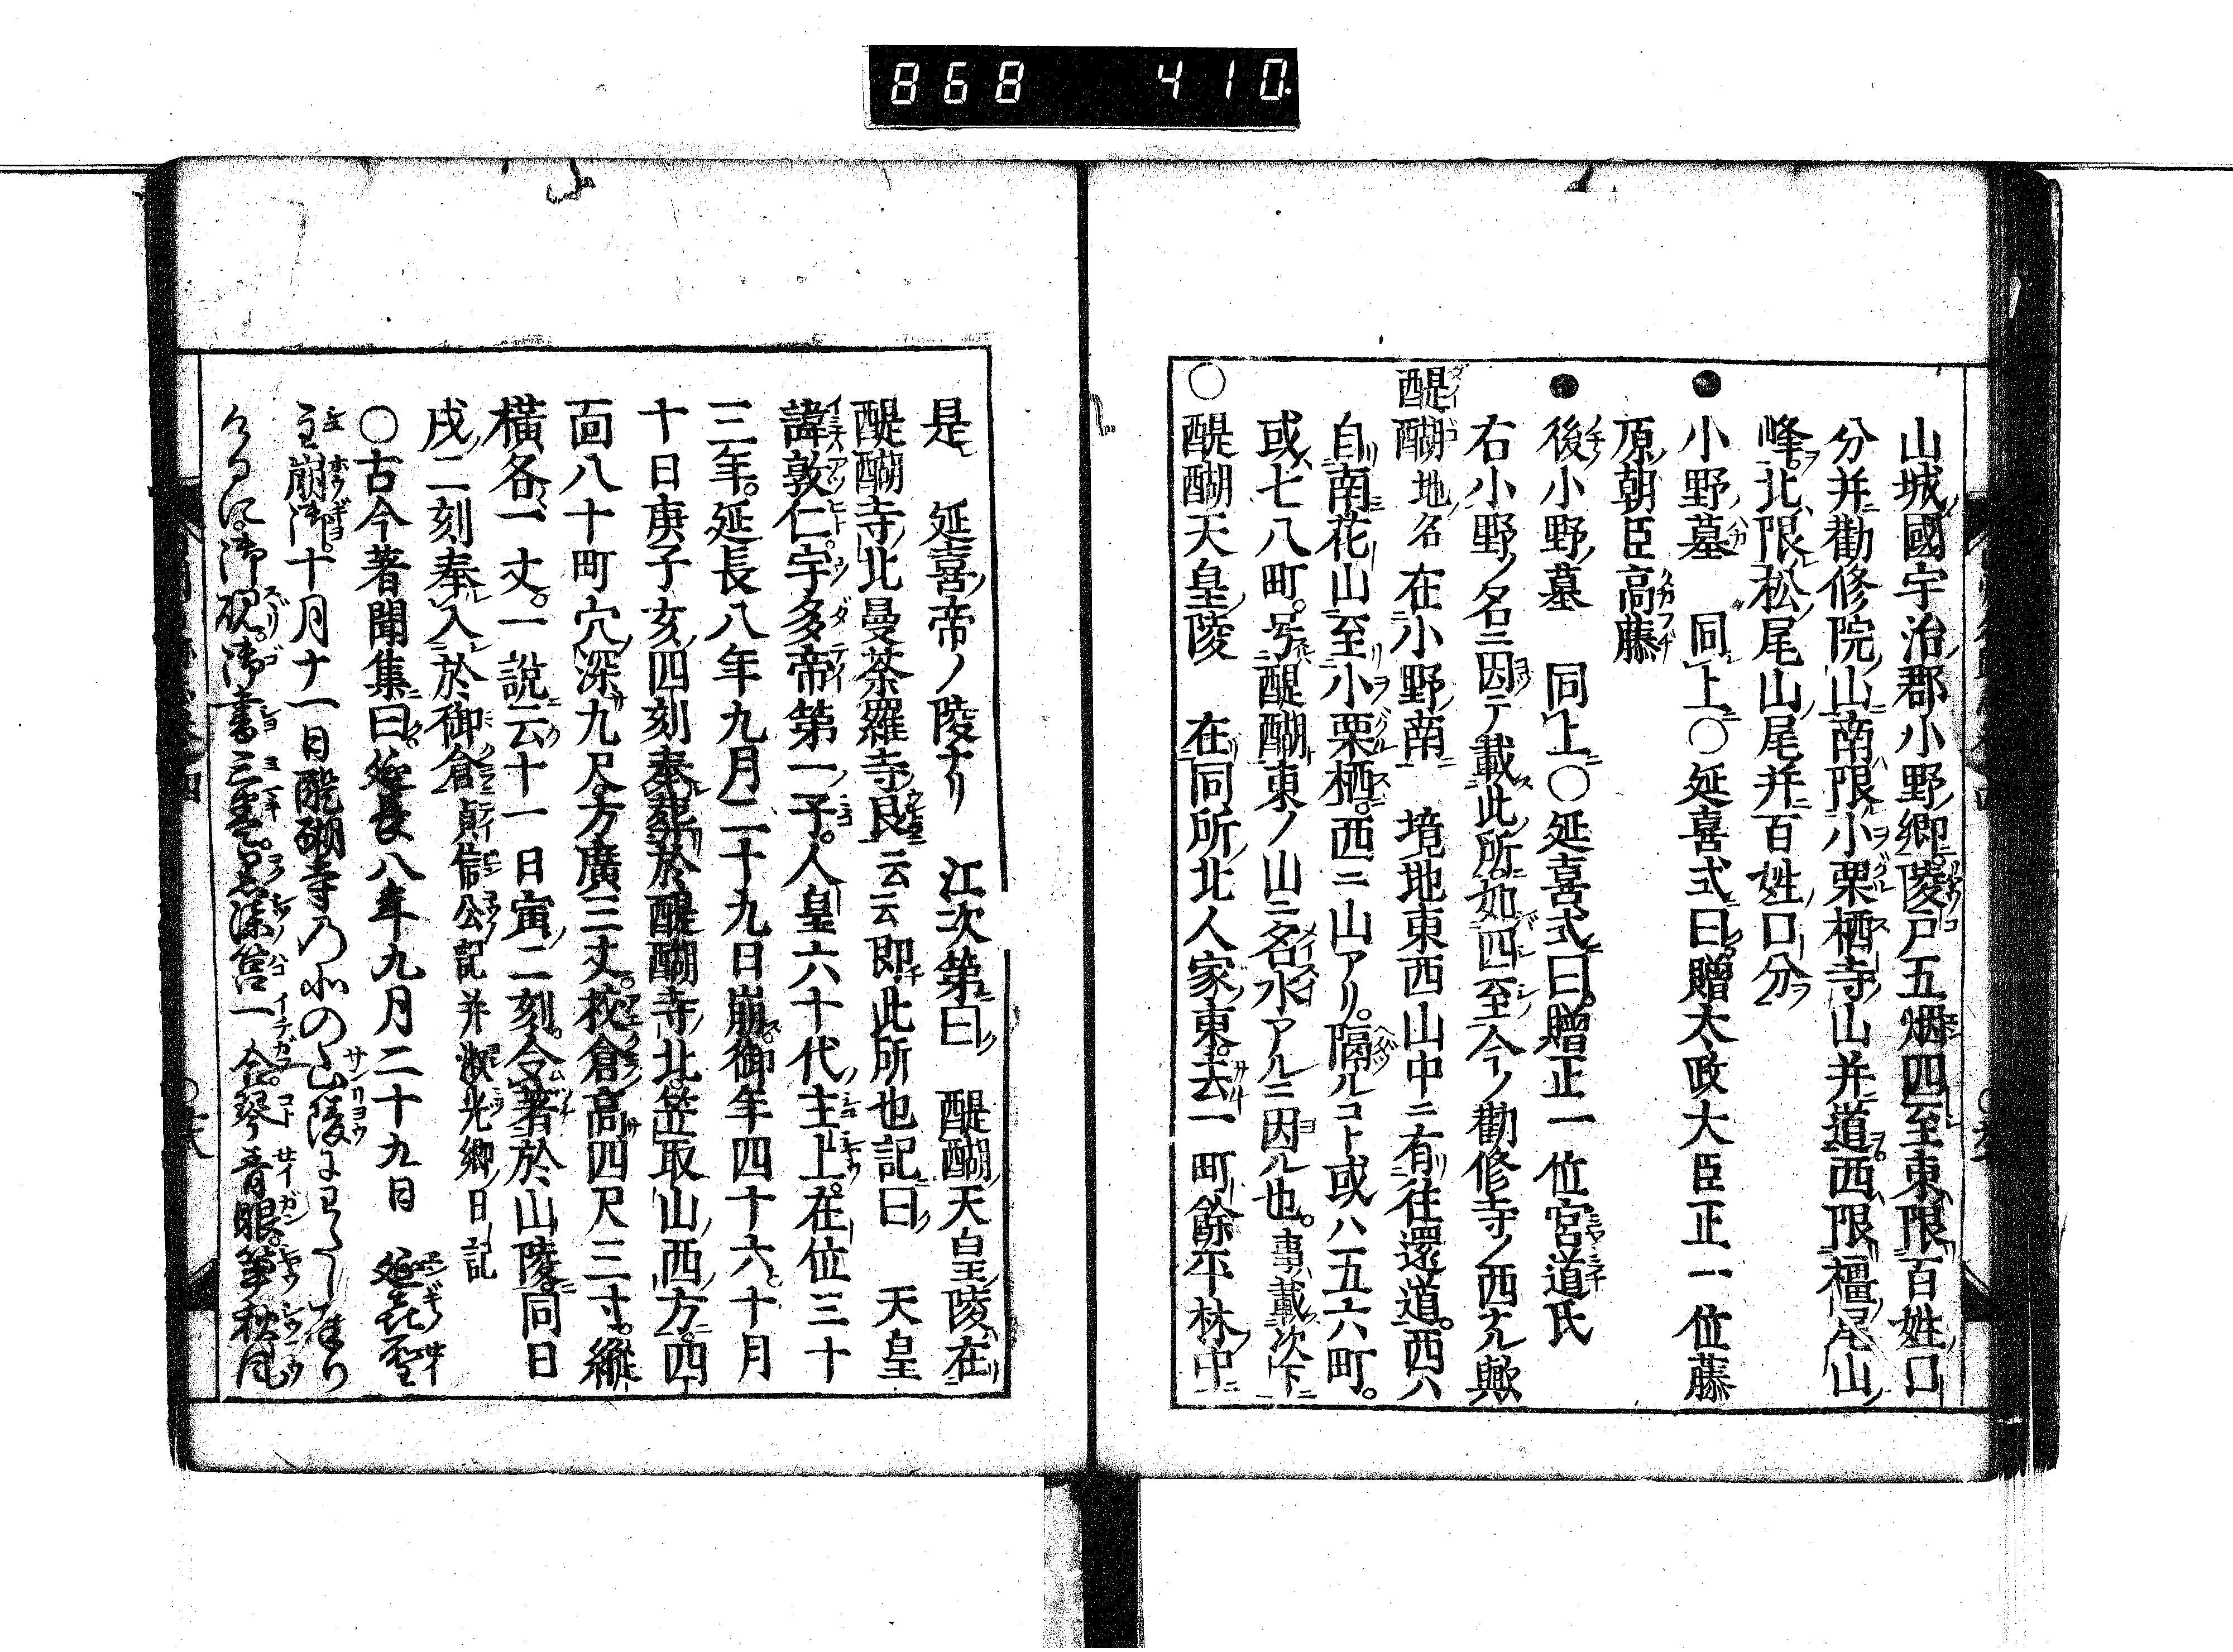 868 410
山城國宇治郡小野郷陵戸五烟四至東限百姓口
分并勸修院山南限小栗栖寺山并道西限橿尾山
峰北限松尾山尾并百姓口分
●小野墓 同上○延喜式曰贈太政大臣正一位藤
原朝臣高藤
●後小野墓 同上○延喜式曰贈正一位宮道氏
右小野ノ名ニ因テ載此所如四至今ノ勸修寺ノ西ナル歟
醍醐地名在小野南 境地東西山中ニ有往還道西ハ
自南花山至小栗栖西ニ山アリ隔ルコト或ハ五六町
或七八町号醍醐東ノ山ニ名水アルニ因ル也事載次下
○醍醐天皇陵 在同所北人家東去一町餘平林中
是 延喜帝ノ陵ナリ 江次第曰 醍醐天皇陵在
醍醐寺北曼荼羅寺艮云云即此所也記曰 天皇
諱敦仁宇多帝第一子人皇六十代主上在位三十
三年延長八年九月二十九日崩御年四十六十月
十日庚子亥四刻奉葬於醍醐寺北笠取山西方四
面八十町穴深九尺方廣三丈校倉高四尺三寸縱
橫各一丈一說云十一日寅二刻令著於山陵同日
戌二刻奉入於御倉貞信公記并淑光卿日記
○古今著聞集曰延長八年九月二十九日 延喜聖
主崩御十月十一日醍醐寺乃北の山陵にわたし奉り
ける に御硯御書三巻 一合琴 眼 秋風